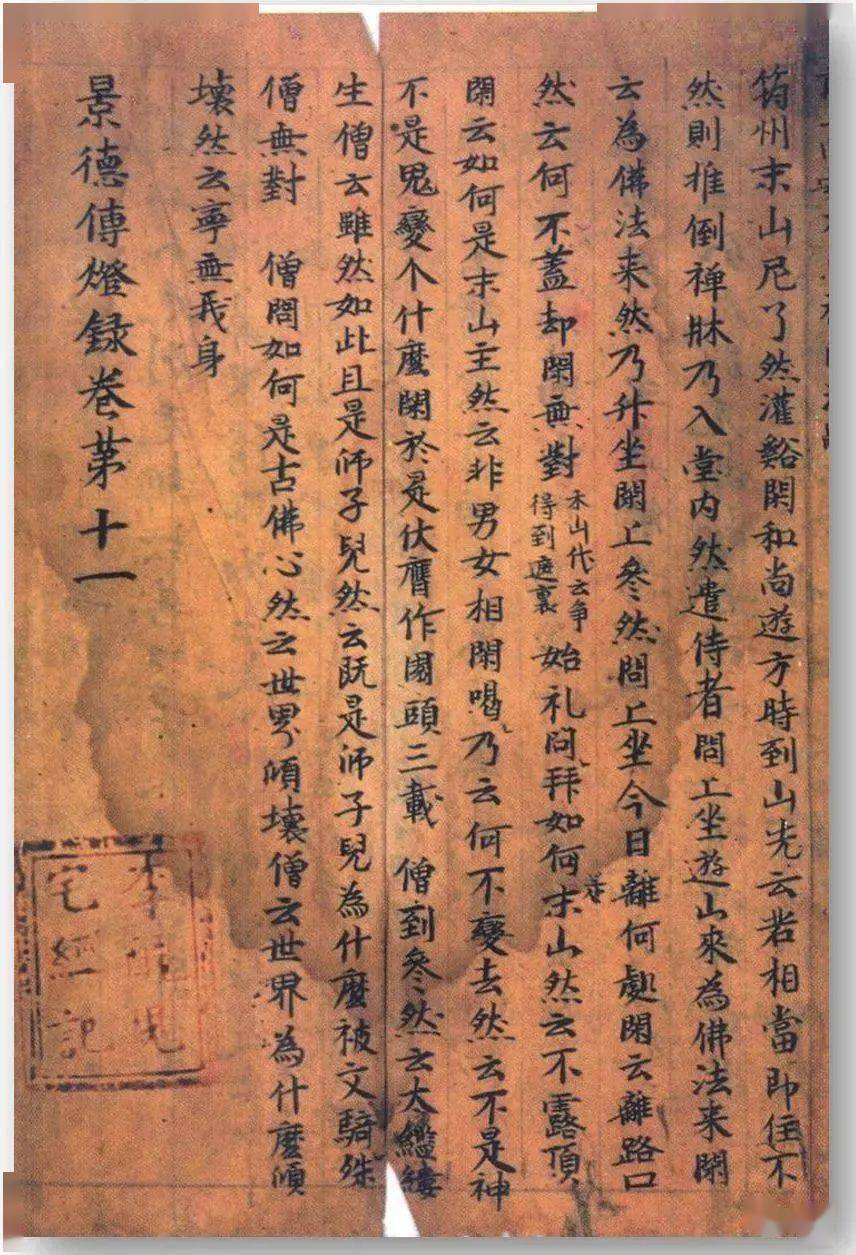 筠州末山尼了然灌谿閑和尚遊方時到山先云若相當即住不
然則推倒禅牀乃入堂内然遣侍者問上坐遊山來為佛法来閑
云為佛法来然乃升坐閑上叅然問上坐今日離何處閑云離路口
然云何不蓋却閑無對
末山代云争
得到遮裏
始礼問拜如何是末山然云不露頂
閑云如何是末山主然云非男女相閑喝乃云何不變去然云不是神
不是鬼變个什麼閑於是伏膺作園頭三載 僧到叅然云太繿縷
生僧云雖然如此且是師子兒然云既是師子兒為什麼被文騎殊
僧無對 僧問如何是古佛心然云世界傾壞僧云世界為什麼傾
壞然云寧無我身
景德傳燈録卷苐十一
李醜兒
宅經記